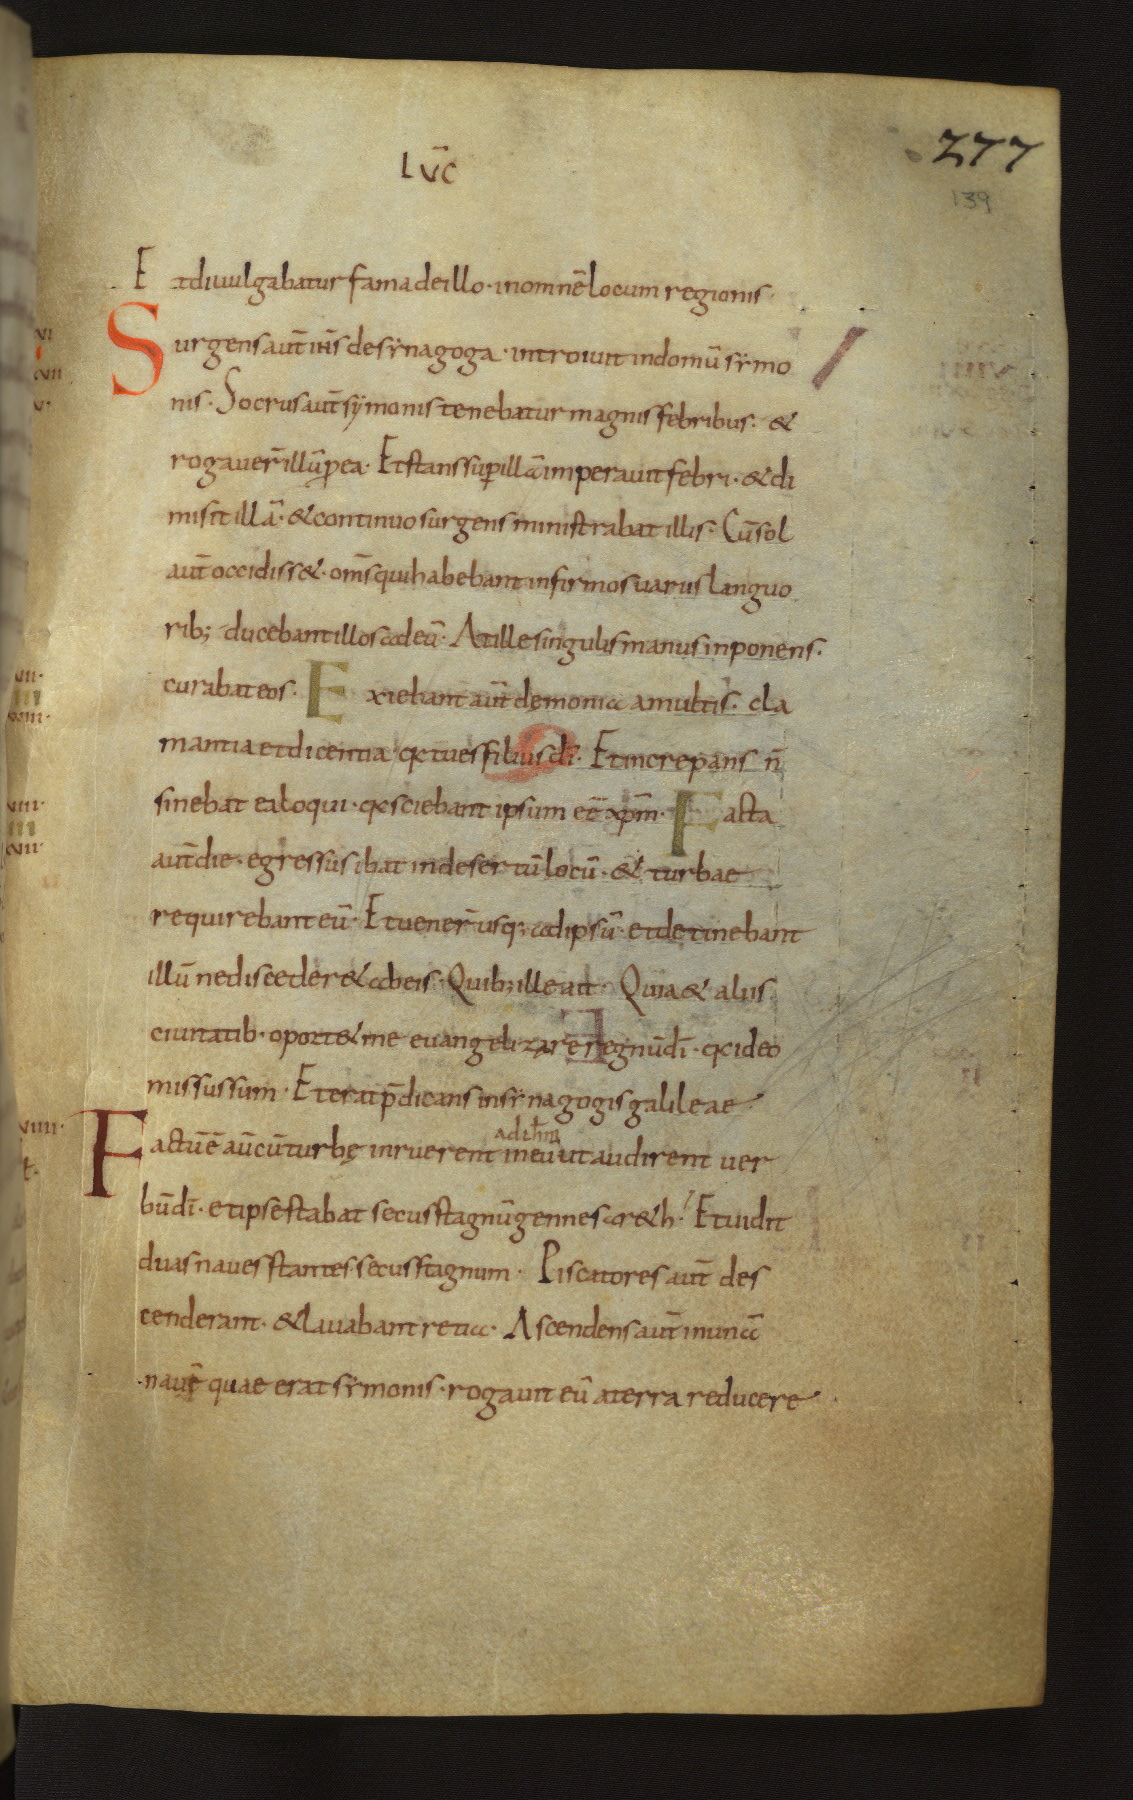 LUC̄
277
139
Et divulgabatur fama de illo · in omnē locum regionis ·
Surgens aut̄ iħs de synagoga · introivit in domū sẏmo
nis · Socrus aut̄ sẏmonis tenebatur magnis febribus · &
rogaver̄ illū ꝑ ea · Et stans suꝑ illā imperavit febri · & di
misit illā · & continuo surgens ministrabat illis · Cū sol
aut̄ occidiss& · om̄s qui habebant infirmos variis languo
rib; ducebant illos ad eū · At ille singulis manus inponens ·
curabat eos · Exiebant aut̄ dęmonia a multis · cla
mantia et dicentia · qa tu es filius dī · Et increpans n̄
sinebat ea loqui · qa sciebant ipsum eē xp̄m · Facta
aut̄ die · egressus ibat in desertū locū · & turbae
requirebant eū · Et vener̄ usq; ad ipsū · et detinebant
illū ne disceder& ab eis · Quib; ille ait · Quia & aliis
civitatib · oport& me evangelizare regnū dī · qa ideo
missus sum · Et erat p̄dicans in sẏnagogis galileae
VIIII ·
ad ihm
Factū ē aū cū turbę inruerent in eū ut audirent ver
bū dī · et ipse stabat secus stagnū gennesar&h · Et vidit
duas naves stantes secus stagnum · Piscatores aut̄ des
cenderant · & lavabant retia · Ascendens aut̄ in unā
navē quae erat sẏmonis · rogavit eū a terra reducere